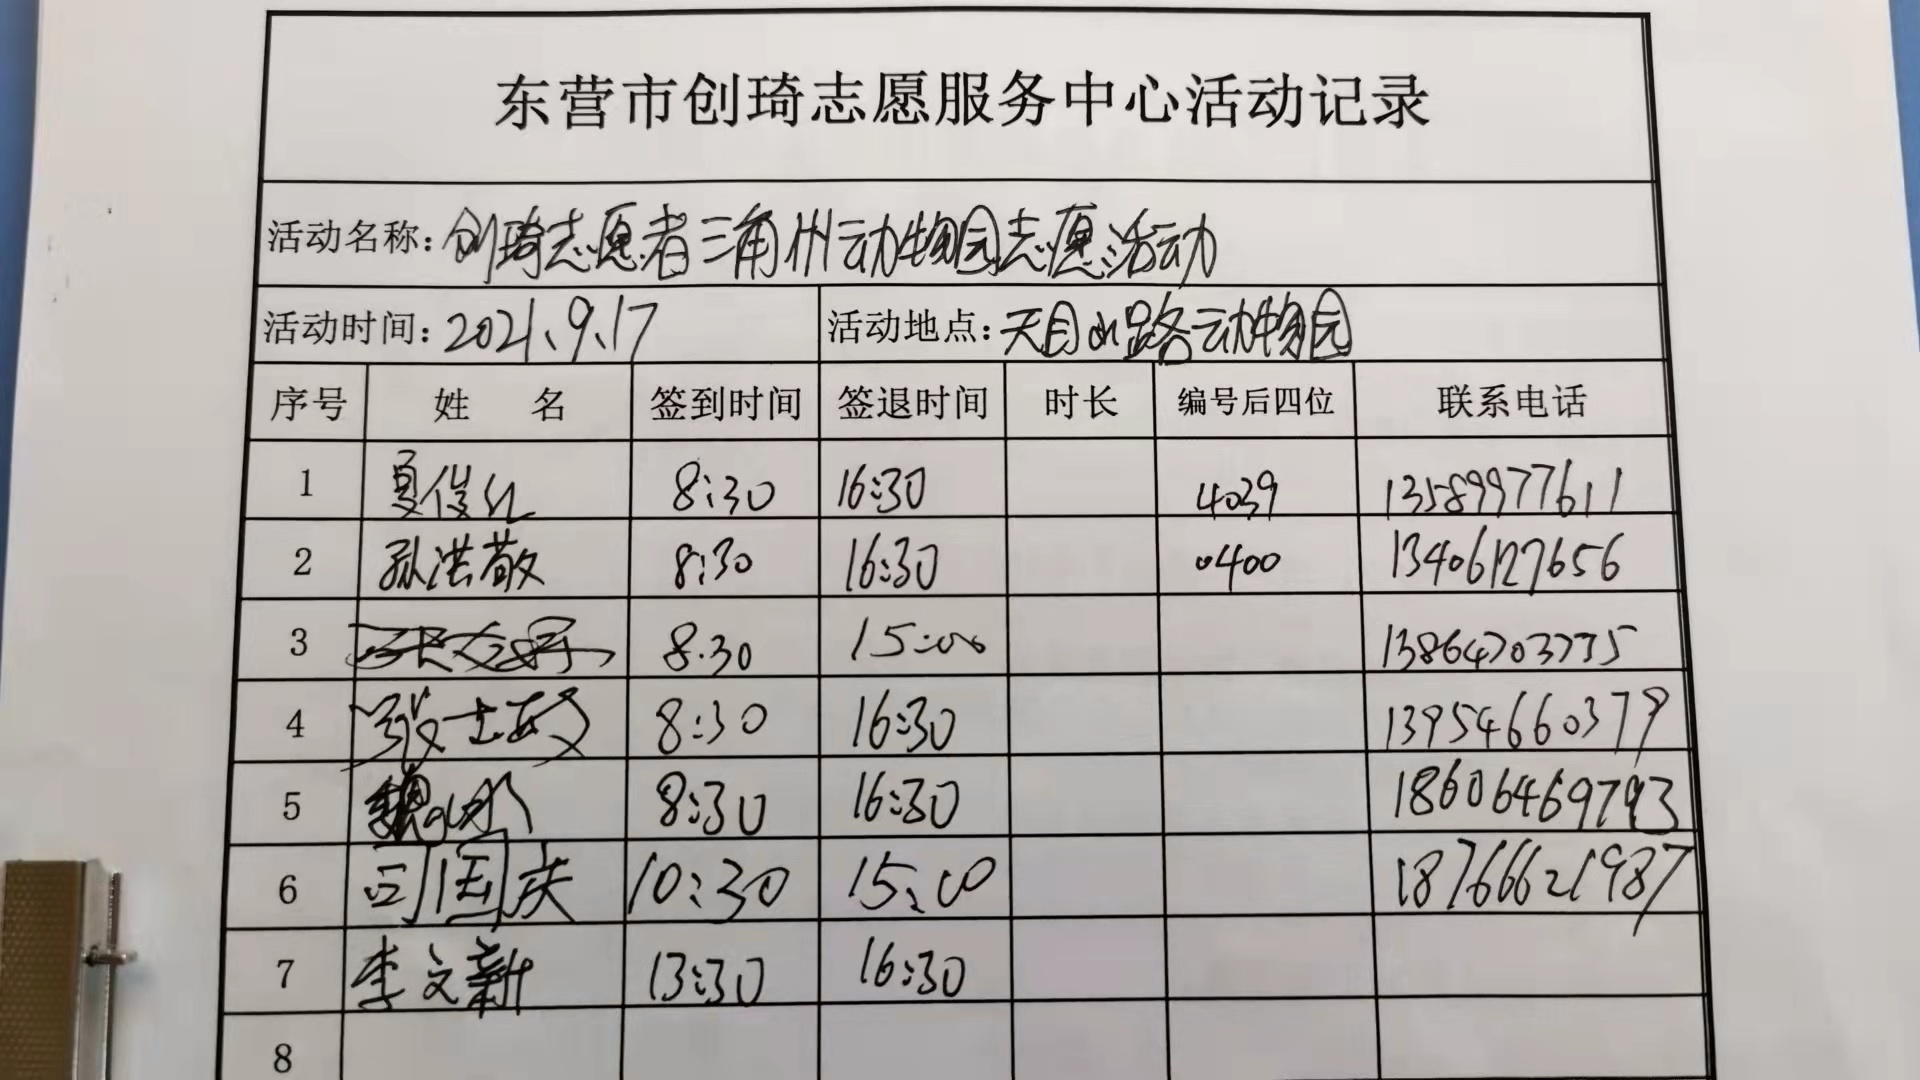 东营市创琦志愿服务中心活动记录
活动名称：创琦志愿者三角州动物园志愿活动
活动时间：2021、9、17 活动地点：天目山路动物园
序号 姓 名 签到时间 签退时间 时长 编号后四位 联系电话
1 夏俊红 8:30 16:30 4039 13589977611
2 孙洪敬 8:30 16:30 0400 13406127656
3 8.30 15:00 13864703775
4 张 8:30 16:30 13954660379
5 魏 8:30 16:30 18606469793
6 司国庆 10:30 15:00 18766621987
7 李文新 13:30 16:30
8